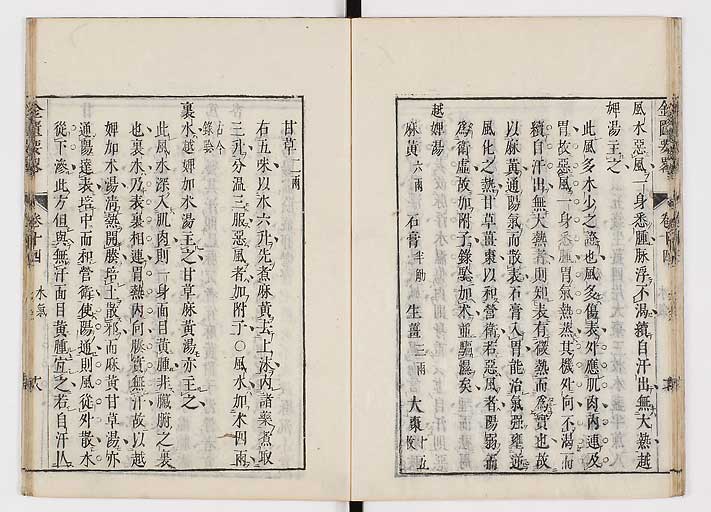 風水惡風一身悉腫脉浮不渴續自汗出無大熱越
婢湯主之
此風多水少之證也風多傷表外應肌肉內連及
胃故惡風一身悉腫胃氣熱蒸其機外向不渴而
續自汗出無大熱者則知表有微熱而為實也故
以麻黃通陽氣而散表石膏入胃能治氣强壅逆
風化之熱甘草薑棗以和營衛若惡風者陽弱而
為衛虛故加附子錄驗加术並驅濕矣
越婢湯
麻黃六兩 石膏半觔 生薑三兩 大棗十五枚
金匱要畧 卷十四 水氣
甘草二兩
右五味以水六升先煮麻黃去上沫內諸藥煮取
三升分溫三服惡風者加附子○風水加术四兩
古今錄驗
裏水越婢加术湯主之甘草麻黃湯亦主之
此風水深入肌肉則一身面目黃腫非臟腑之裏
也裏水乃表裏相連胃熱內向腠實無汗故以越
婢加术湯清熱開腠培土散邪而麻黃甘草湯亦
通陽達表培中而和營衛使陽通則風從外散水
從下滲此方但與無汗面目黃腫宜之若自汗仆
金匱要畧 卷十四 水氣